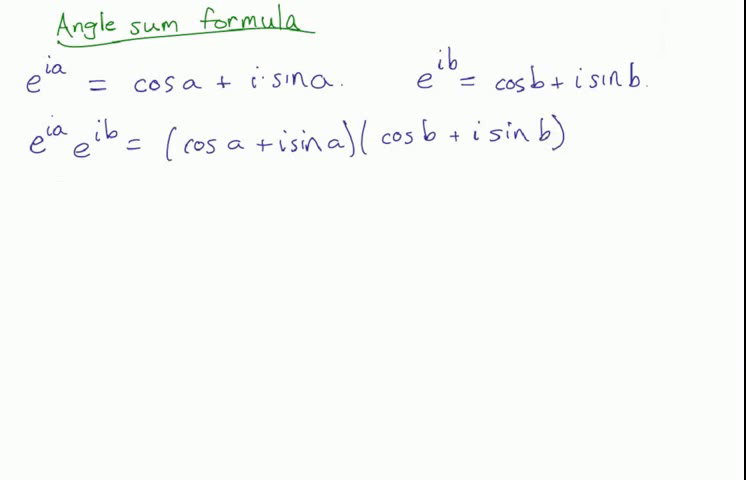 Angle sum formula
e^{ia} = cos a + i·sin a. e^{ib} = cos b + i sin b.
e^{ia} e^{ib} = (cos a + i sin a)(cos b + i sin b)